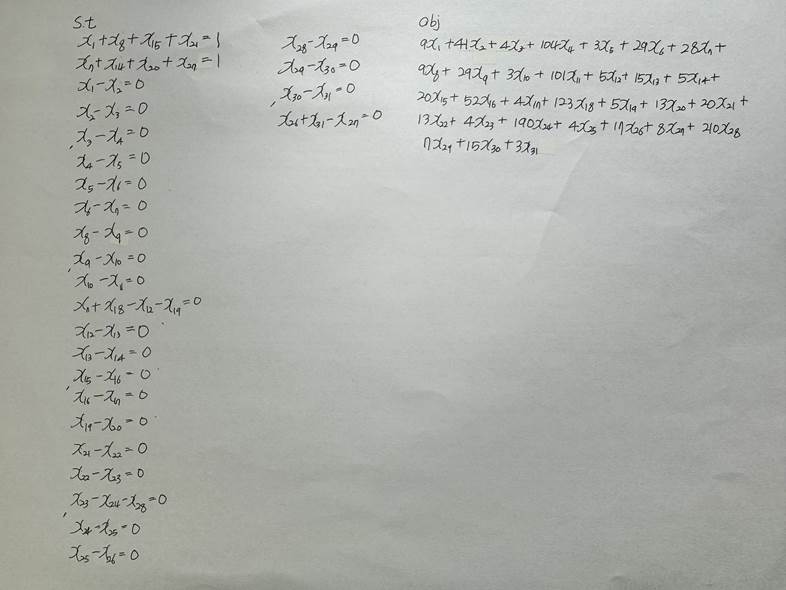 s.t
x₁ + x₈ + x₁₅ + x₂₁ = 1
x₇ + x₁₄ + x₂₀ + x₂₇ = 1
x₁ - x₂ = 0
x₂ - x₃ = 0
x₃ - x₄ = 0
x₄ - x₅ = 0
x₅ - x₆ = 0
x₆ - x₇ = 0
x₈ - x₉ = 0
x₉ - x₁₀ = 0
x₁₀ - x₁₁ = 0
x₁₁ + x₁₈ - x₁₂ - x₁₉ = 0
x₁₂ - x₁₃ = 0
x₁₃ - x₁₄ = 0
x₁₅ - x₁₆ = 0
x₁₆ - x₁₇ = 0
x₁₉ - x₂₀ = 0
x₂₁ - x₂₂ = 0
x₂₂ - x₂₃ = 0
x₂₃ - x₂₄ - x₂₈ = 0
x₂₄ - x₂₅ = 0
x₂₅ - x₂₆ = 0
x₂₈ - x₂₉ = 0
x₂₉ - x₃₀ = 0
x₃₀ - x₃₁ = 0
x₂₆ + x₃₁ - x₂₇ = 0
obj
9x₁ + 41x₂ + 4x₃ + 104x₄ + 3x₅ + 29x₆ + 28x₇ +
9x₈ + 29x₉ + 3x₁₀ + 101x₁₁ + 5x₁₂ + 15x₁₃ + 5x₁₄ +
20x₁₅ + 52x₁₆ + 4x₁₇ + 123x₁₈ + 5x₁₉ + 13x₂₀ + 20x₂₁ +
13x₂₂ + 4x₂₃ + 190x₂₄ + 4x₂₅ + 17x₂₆ + 8x₂₇ + 210x₂₈
7x₂₉ + 15x₃₀ + 3x₃₁